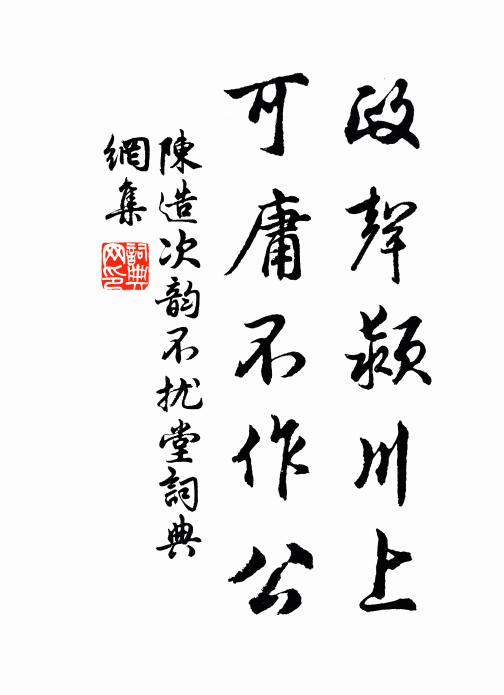 政聲潁川上
可庸不作公
陳造次韵不扰堂詞典
網集
詞典网印